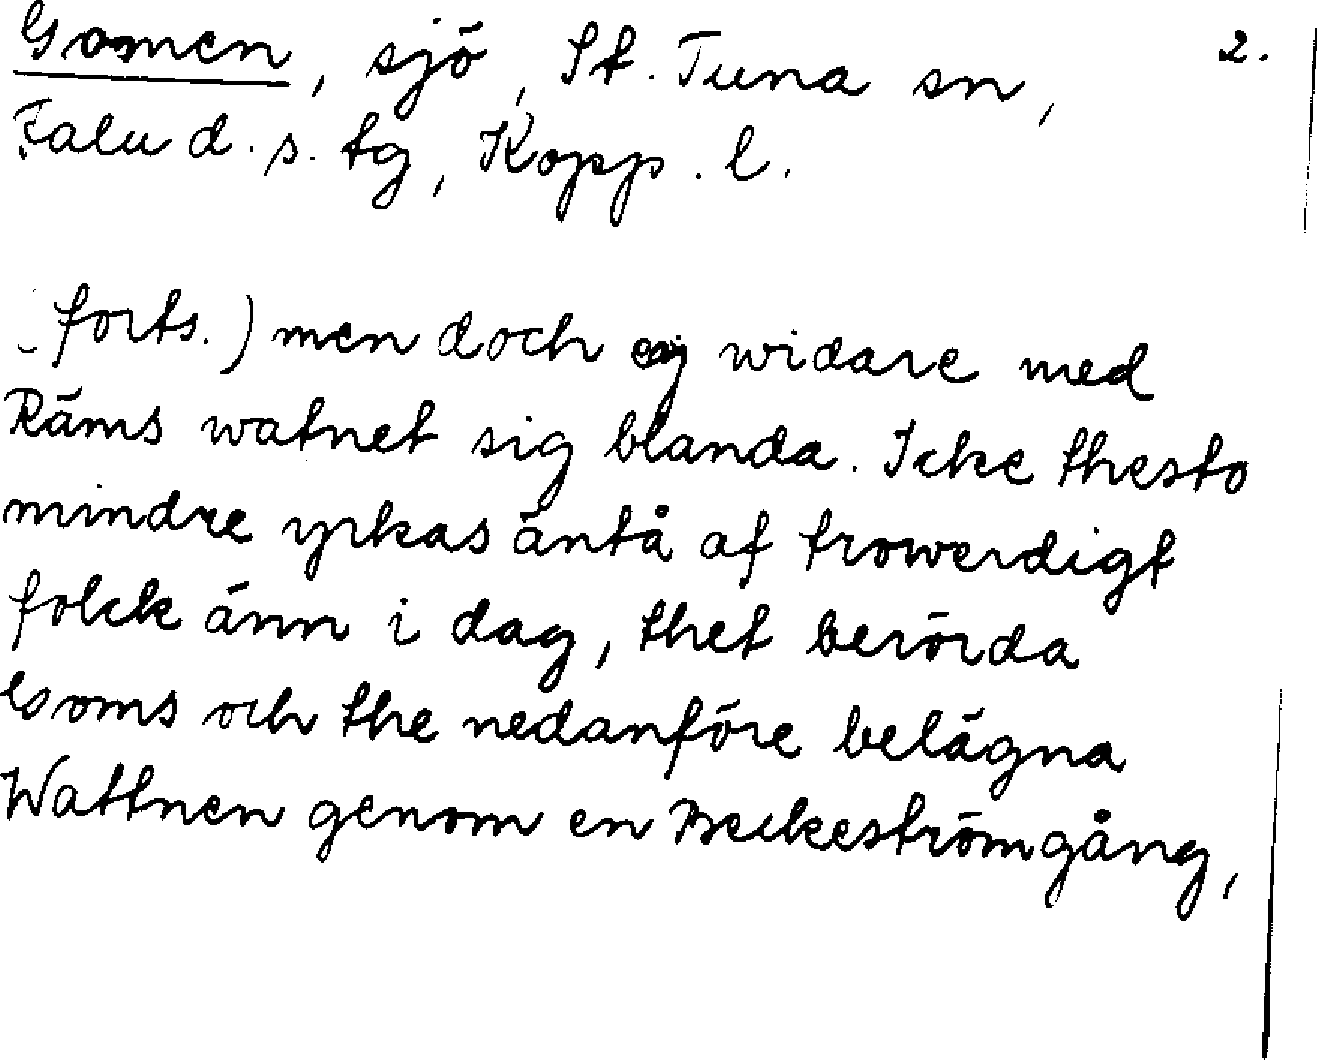 Gomen, sjö, St. Tuna sn, 2.
Falu d. s. tg, Kopp. l.
(forts.) men doch ej widare med
Räms watnet sig blanda. Icke thesto
mindre yrkas äntå af trowerdigt
folck änn i dag, thet berörda
Goms och the nedanföre belägna
Wattnen genom en Beckeströmgång,